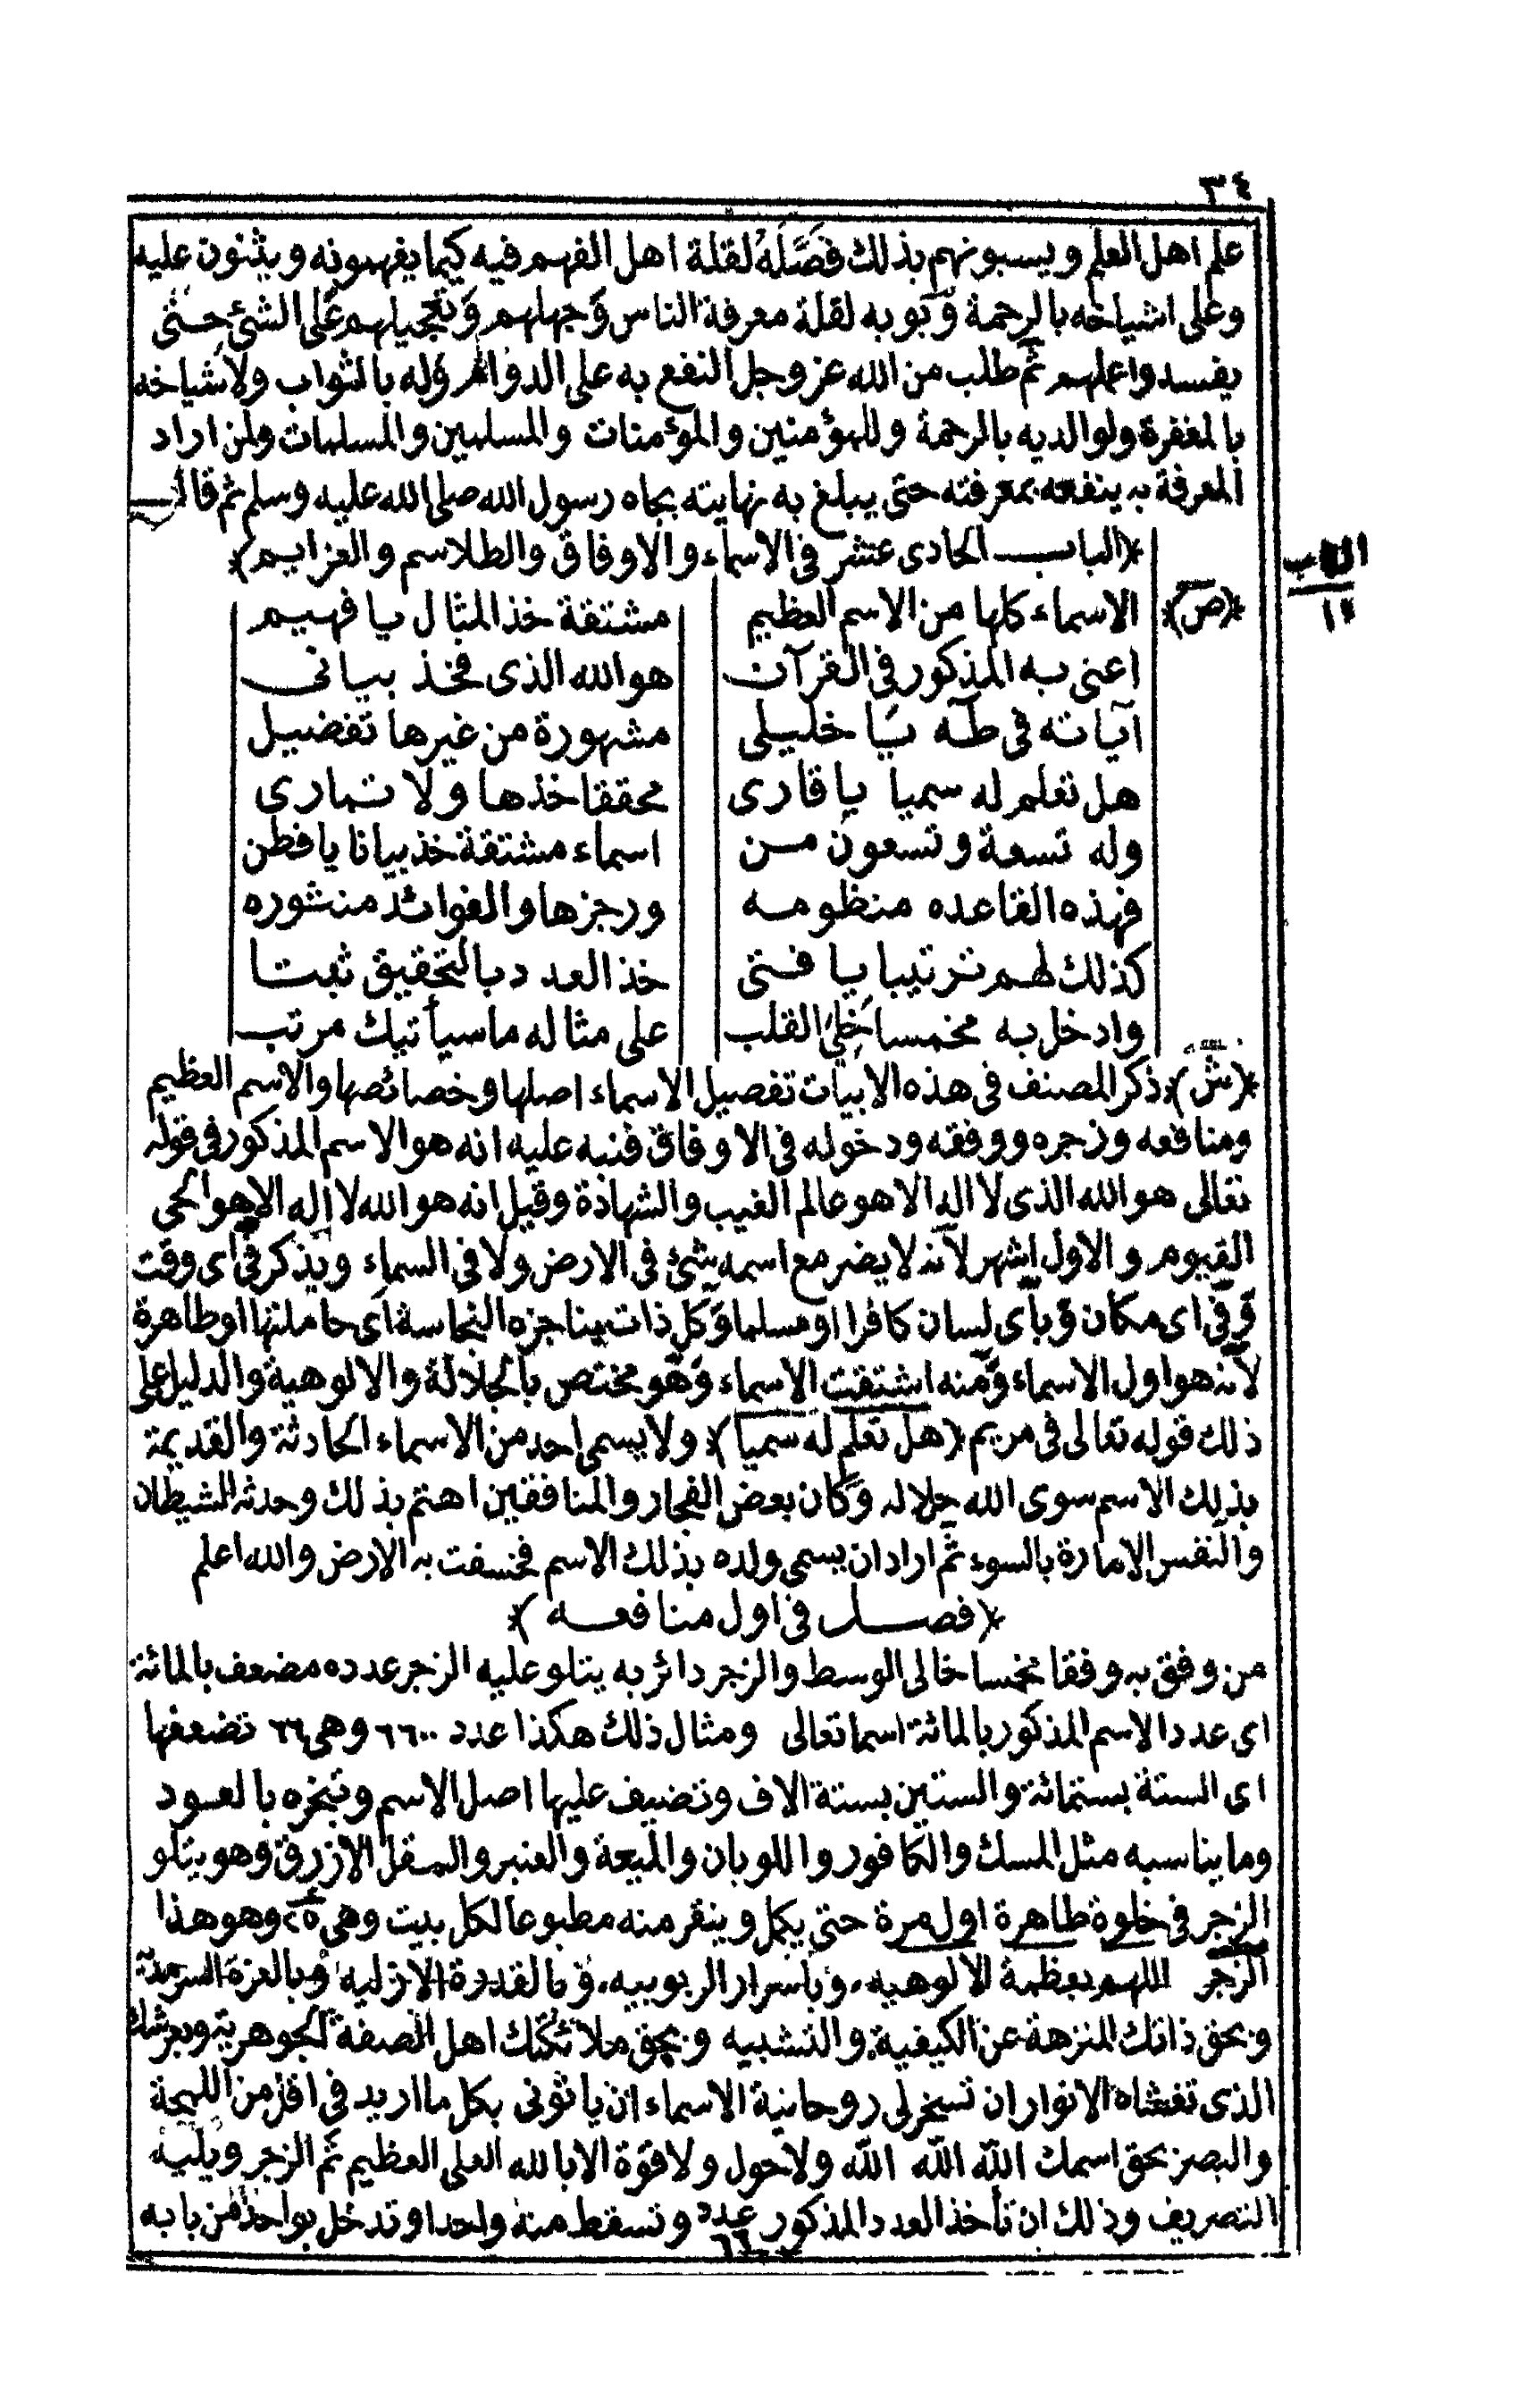 ٣٤
علم اهل العلم ويسبونهم بذلك فصّله لقلة اهل الفهم فيه كيما يفهمونه ويثنون عليه
وعلى اشياخه بالرحمة وبوبه لقلة معرفة الناس وجهلهم على الشئ حتى
يفسدوا عملهم ثم طلب من الله عز وجل النفع به على الدوام وله بالثواب ولاشياخه
بالمغفرة ولوالديه بالرحمة وللمؤمنين والمؤمنات والمسلمين والمسلمات ولمن اراد
المعرفة به ينفعه بمعرفته حتى يبلغ به نهايته بجاه رسول الله صلى الله عليه وسلم ثم قال
﴿الباب الحادى عشر فى الاسماء والاوفاق والطلاسم والعزايم﴾
الباب
١١
﴿ص﴾ الاسماء كلها من الاسم العظيم مشتقة خذ المثال يا فهيم
اعنى به المذكور فى القرآن هو الله الذى فخذ بيانى
آياته فى طه يا خليلى مشهورة من غيرها تفضيل
هل تعلم له سميا يا قارى محققا خذها ولا تمارى
وله تسعة وتسعون من اسماء مشتقة خذ بيانا يا فطن
فهذه القاعده منظومه ورجزها والفوائد منثوره
كذلك لهم ترتيبا يا فتى خذ العدد بالتحقيق ثبتا
وادخل به مخمسا خلىّ القلب على مثاله ما سيأتيك مرتب
﴿ش﴾ ذكر المصنف فى هذه الابيات تفصيل الاسماء اصلها وخصائصها والاسم العظيم
ومنافعه وزجره ووفقه ودخوله فى الاوفاق فنبه عليه انه هو الاسم المذكور فى قوله
تعالى هو الله الذى لا اله الا هو عالم الغيب والشهادة وقيل انه هو الله لا اله الا هو الحى
القيوم والاول اشهر لانه لا يضر مع اسمه شئ فى الارض ولا فى السماء ويذكر فى اى وقت
وفى اى مكان وبأى لسان كافرا او مسلما وكل ذات بيناجزه النجاسة اى حاملتها او طاهرة
لانه هو اول الاسماء ومنه اشتقت الاسماء وهو مختص بالجلالة والالوهية والدليل على
ذلك قوله تعالى فى مريم ﴿هل تعلم له سميا﴾ ولا يسمى احد من الاسماء الحادثة والقديمة
بذلك الاسم سوى الله جلاله وكان بعض الفجار والمنافقين اهتم بذلك وحدثه الشيطان
والنفس الامارة بالسوء ثم اراد ان يسمى ولده بذلك الاسم فخسفت به الارض والله اعلم
﴿فصل فى اول منافعه﴾
من وفق به وفقا مخمسا خالى الوسط والزجر دائر به يتلو عليه الزجر عدده مضعف بالمائة
اى عدد الاسم المذكور بالمائة اسما تعالى ومثال ذلك هكذا عدد ٦٦٠٠ وهى ٦٦ تضعفها
اى الستة بستمائة والستين بستة الاف وتضيف عليها اصل الاسم وتبخره بالعود
وما يناسبه مثل المسك والكافور واللوبان والميعة والعنبر والمقل الازرق وهو يتلو
الزجر فى خلوة طاهرة اول مرة حتى يكمل وينقر منه مطبوعا لكل بيت وهى وهو هذا
الزجر اللهم بعظمة الالوهيه وبأسرار الربوبيه وبالقدرة الازليه وبالعزة السرمدية
وبحق ذاتك المنزهة عن الكيفية والتشبيه وبحق ملائكتك اهل الصفة الجوهرية وبعرشك
الذى تغشاه الانوار ان تسخر لى روحانية الاسماء ان ياتونى بكل ما اريد فى اقل من اللمحة
والبصر بحق اسمك الله الله الله ولا حول ولا قوة الا بالله العلى العظيم ثم الزجر ويليه
التصريف وذلك ان تأخذ العدد المذكور عدد ٦٦ وتسقط منه واحدا وتدخل بواحد من بابه